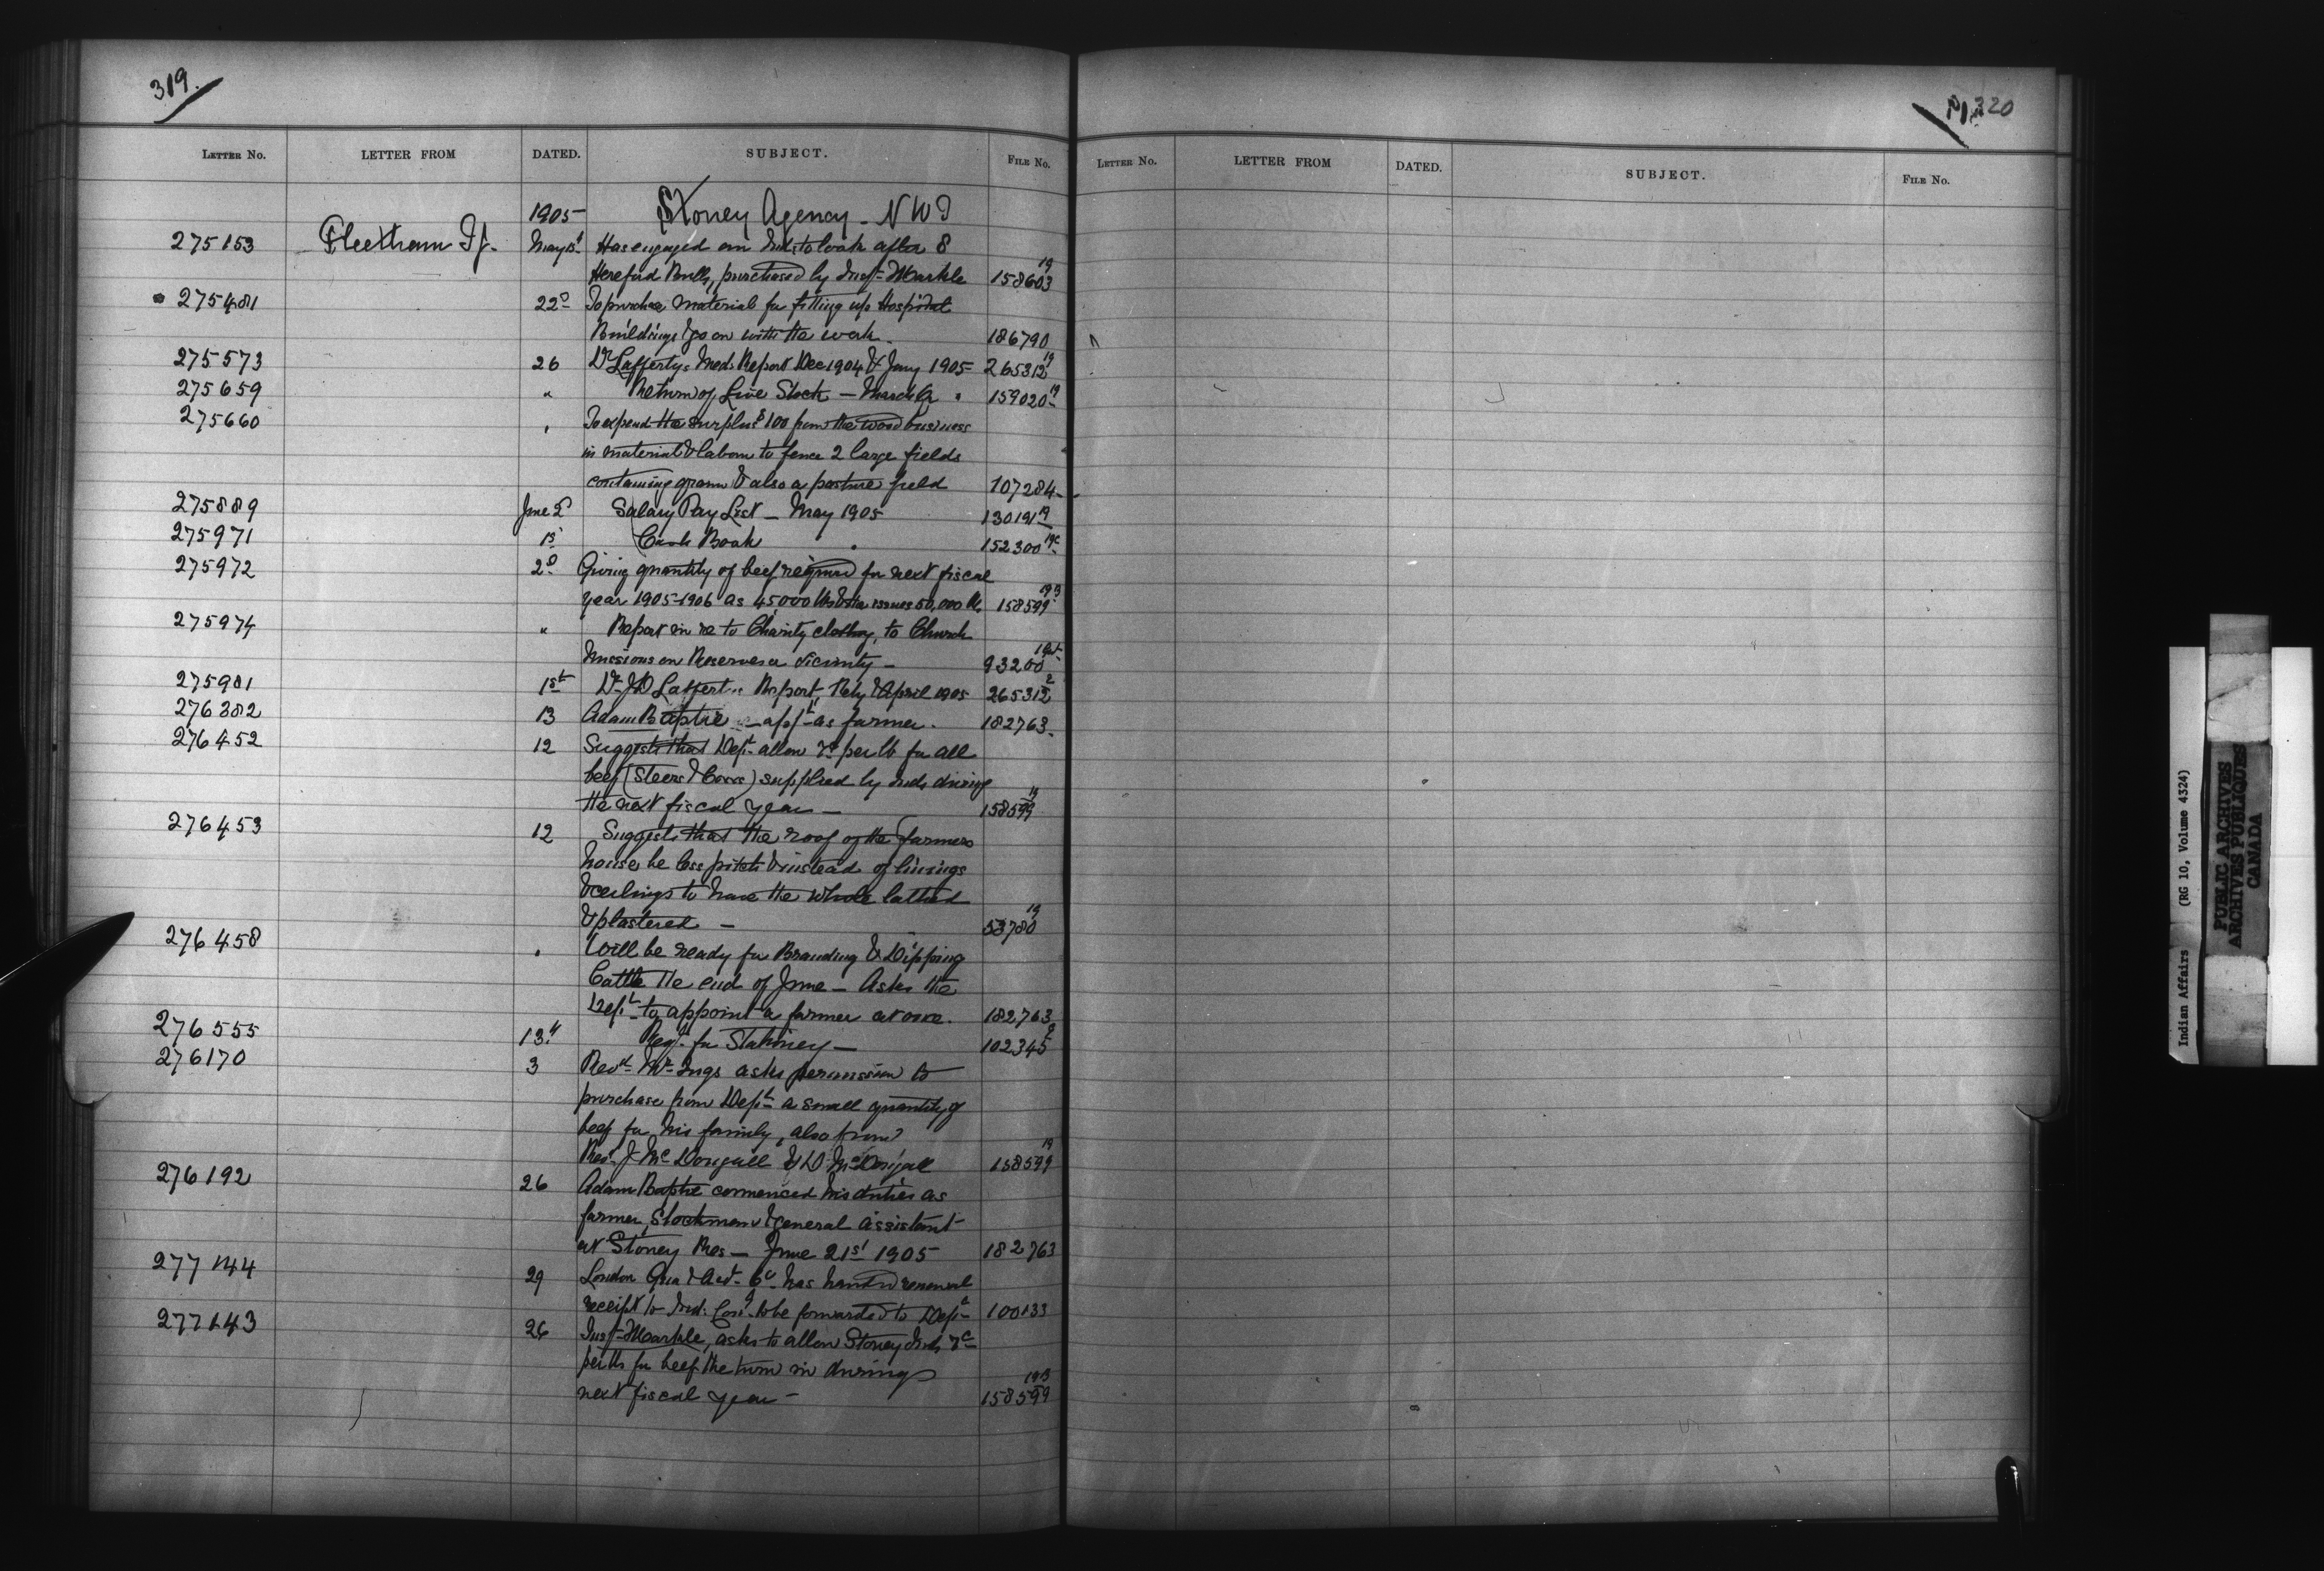 319.
LETTER NO. LETTER FROM DATED. SUBJECT. FILE NO.
1905 Stoney Agency - NWT
275153 Fleetham T J. May 15t Has engaged an Ind. to look after 8
Hereford Bulls, purchased by Inspr Markle 158603 19
275481 22d To purchase material for fitting up Hospital
Buildings & go on with the work. 186790
275573 26 Dr Laffertys Med. Report Dec 1904 & Jany 1905 265312 19
275659 " Return of Live Stock - March Qr " 159020 19
275660 " To expend the surplus $100 from the wood business
in material & labour to fence 2 large fields
containing & also a pasture field 107284
275889 June 2d Salary Pay List - May 1905 130191 19
275971 15 Cash Book " 152300 19c
275972 2d Giving quantity of beef required for next fiscal
year 1905-1906 as 45000 lbs issues 50,000 lbs 158599 193
275974 " Report in re to Charity clothing, to Church
Missions on Reserves or vicinity - 93200
275981 1st Dr JD Lafferty's Report, Feby & April 1905 265312 2
276382 13 Adam Baptie - appt as farmer. 182763
276452 12 Suggests that Dept allow 7c per lb for all
beef (Steers & Cows) supplied by Inds during
the next fiscal year - 158599 19
276453 12 Suggests that the roof of the farmers
house be less pitch & instead of linings
& ceilings to have the whole lathed
& plastered - 53780 19
276458 " Will be ready for Branding & Dipping
Cattle the end of June - Asks the
Dept to appoint a farmer at once. 182763
276555 13th Reqn for Stationery - 102345
276170 3 Revd Mr Ings asks permission to
purchase from Dept a small quantity of
beef for his family, also from
Rev. J. McDougall & D. McDougall 158599 19
276192 26 Adam Baptie commenced his duties as
farmer, Stockman & General Assistant
at Stoney Res - June 21st 1905 182763
277144 29 London Gua & Acct Co has handed renewal
receipt to Ind. Comr to be forwarded to Dept 100133
277143 26 Inspr Markle, asks to allow Stoney Inds 7c
per lb for beef the turn in during
next fiscal year - 158599 193
320
LETTER NO. LETTER FROM DATED. SUBJECT. FILE NO.
Indian Affairs (RG 10, Volume 4324)
PUBLIC ARCHIVES
ARCHIVES PUBLIQUES
CANADA